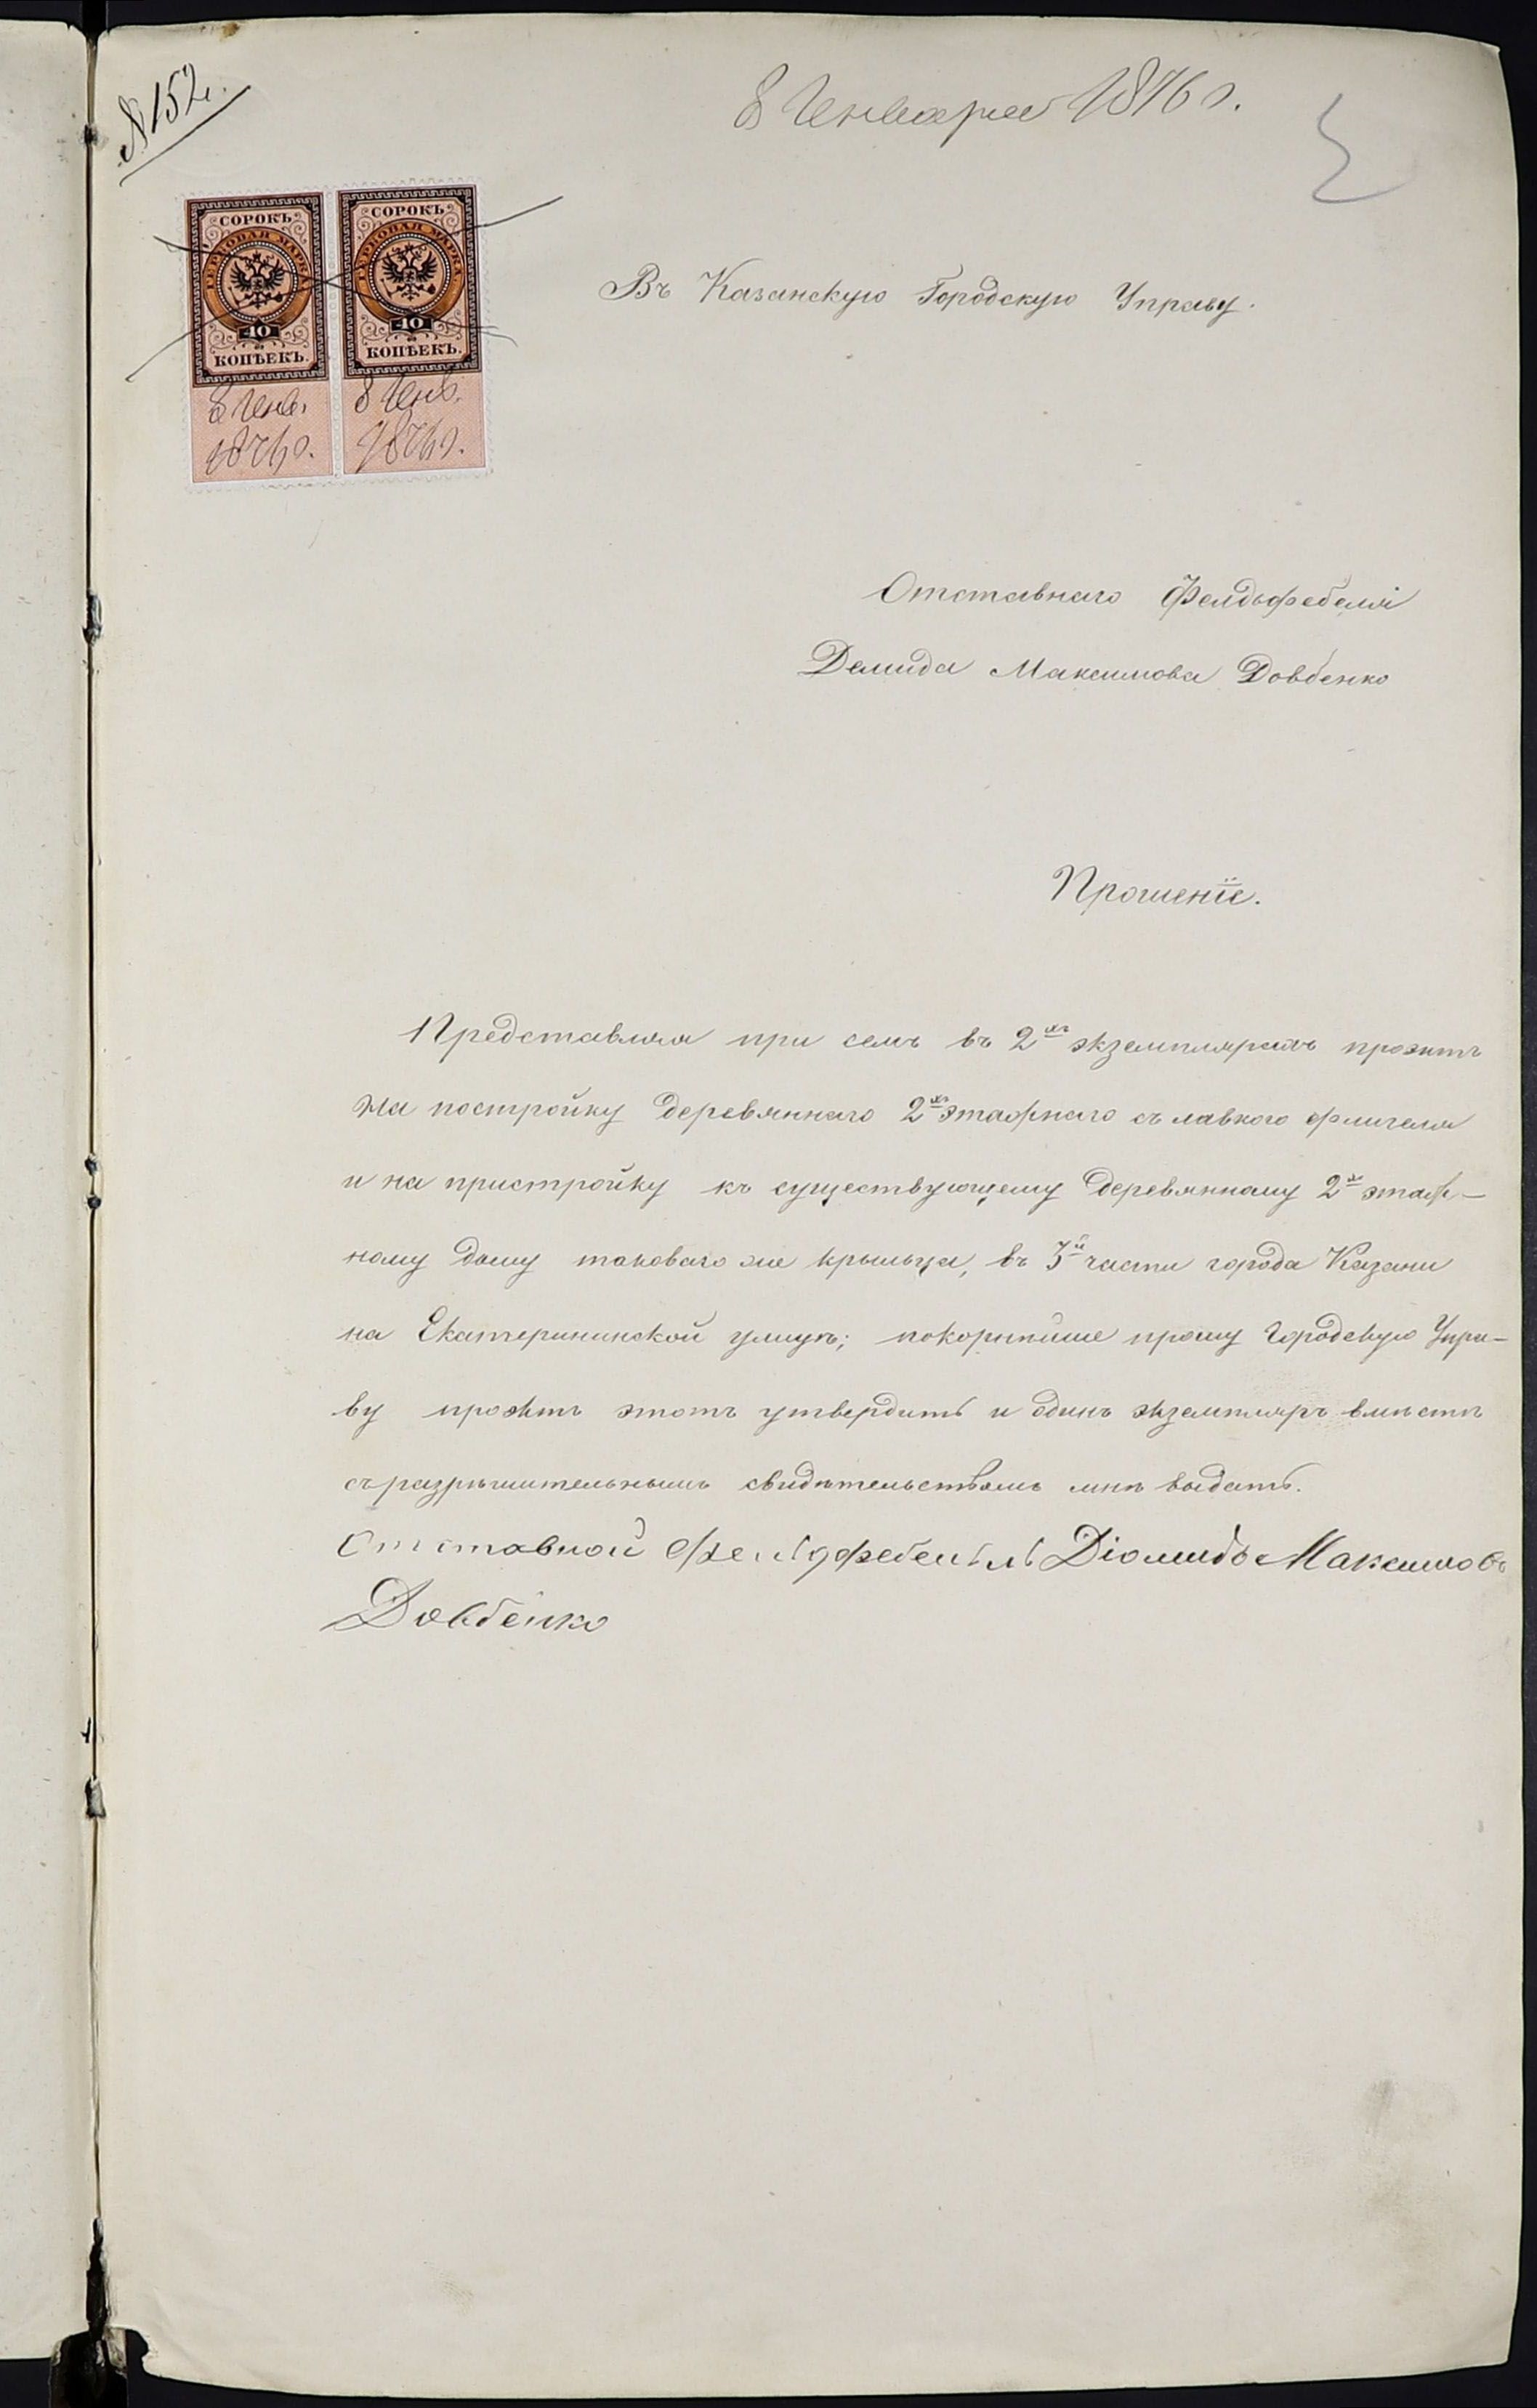 № 152.
8 Января 1876 г.
2
СОРОКЪ
ГЕРБОВАЯ МАРКА
40
КОПѢЕКЪ.
8 Янв.
1876 г.
СОРОКЪ
ГЕРБОВАЯ МАРКА
40
КОПѢЕКЪ.
8 Янв.
1876 г.
Въ Казанскую Городскую Управу.
Отставнаго Фелдьфебеля
Демида Максимова Довбенко
Прошеніе.
Представляя при семъ въ 2хъ экземплярахъ проэктъ
на постройку деревяннаго 2хъ этажнаго съ лавкою флигеля
и на пристройку къ существующему деревянному 2х этаж-
ному дому таковаго же крыльца, въ 3й части города Казани
на Екатерининской улицѣ; покорнѣйше прошу Городскую Упра-
ву проэктъ этотъ утвердить и одинъ экземпляръ вмѣстѣ
съ разрѣшительнымъ свидѣтельствомъ мнѣ выдать.
Отставной Діомидъ Максимовъ
Довбенко